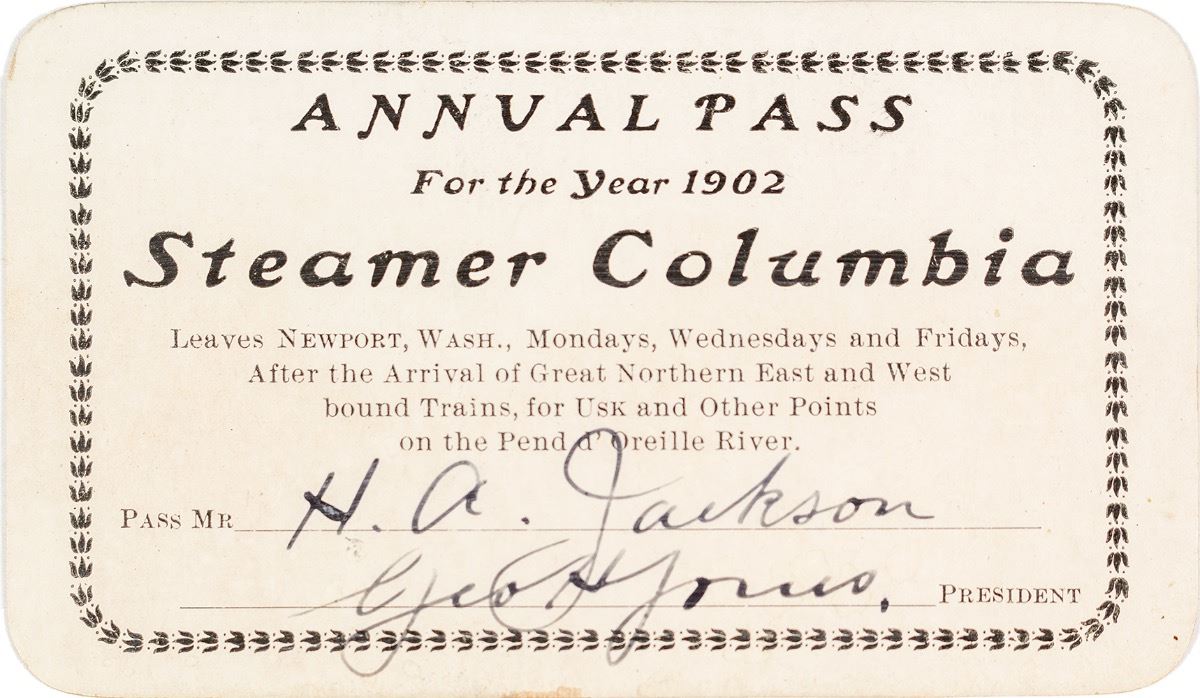 ANNUAL PASS
For the Year 1902
Steamer Columbia
Leaves NEWPORT, WASH., Mondays, Wednesdays and Fridays,
After the Arrival of Great Northern East and West
bound Trains, for USK and Other Points
on the Pend d'Oreille River.
PASS MR H. A. Jackson
Geo H Jones, PRESIDENT